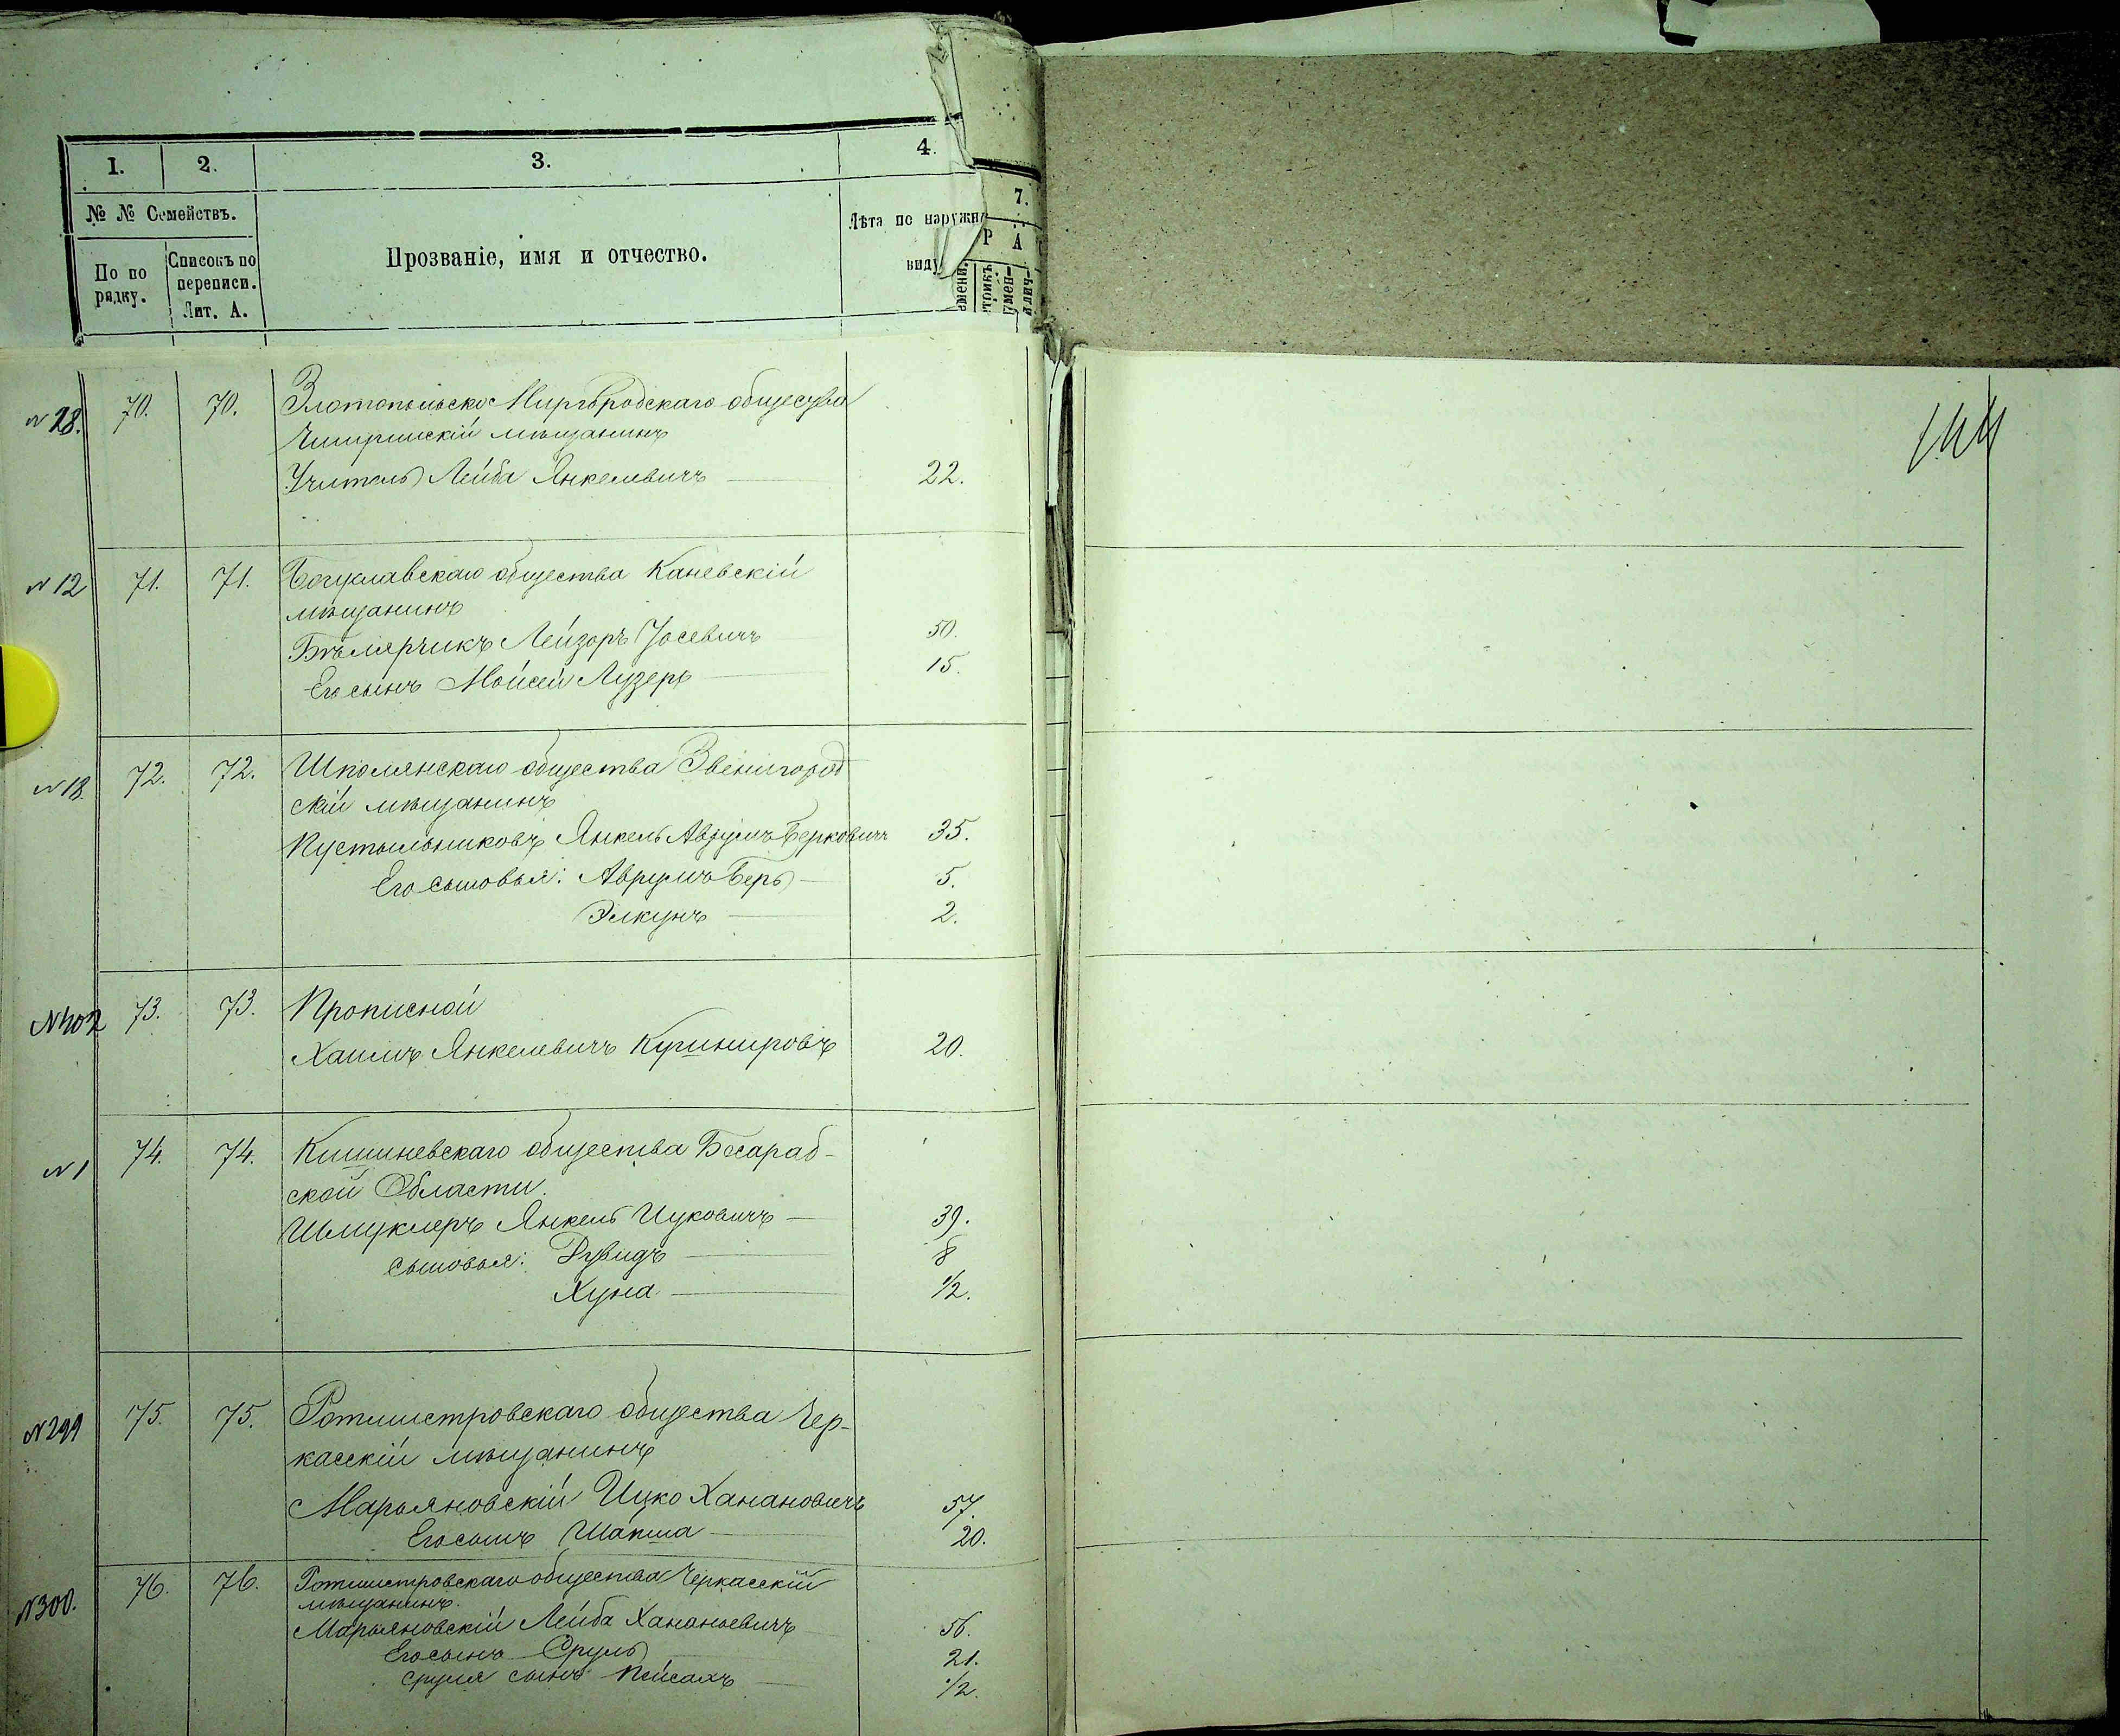 1. 2. 3. 4. 7.
№ № Семействъ.
По по рядку.
Списокъ по переписи. Лит. А.
Прозваніе, имя и отчество.
Лѣта по наружн
виду
Р А
144
№ 28. 70. 70. Златопольско Миргородскаго общества
Чигринскій мѣщанинъ
Учитель Лейба Янкелевичъ 22.
№ 12 71. 71. Богуславскаго общества Каневскій
мѣщанинъ
Лейзоръ Іосевичъ 50.
Его сынъ Мойсей Лузеръ 15.
№ 18. 72. 72. Шполянскаго общества Звенигород
скій мѣщанинъ
Пустыльниковъ Янкель Аврумъ Берковичъ 35.
Его сыновья: Аврумъ Беръ 5.
Элкунъ 2.
№ 302 73. 73. Прописной
Хаимъ Янкелевичъ Кушнировъ 20.
№ 1 74. 74. Кишиневскаго общества Бесараб-
ской Области.
Шмуклеръ Янкель Ицковичъ 39.
сыновья: Дувидъ 8
Хуна 1/2.
№ 299 75. 75. Ротмистровскаго общества Чер-
касскій мѣщанинъ
Марьяновскій Ицко Ханановичъ 57.
Его сынъ Шапша 20.
№ 300. 76. 76. Ротмистровскаго общества Черкасскій
мѣщанинъ.
Марьяновскій Лейба Хананьевичъ 56.
Его сынъ Сруль 21.
Сруля сынъ Пейсахъ 1/2.